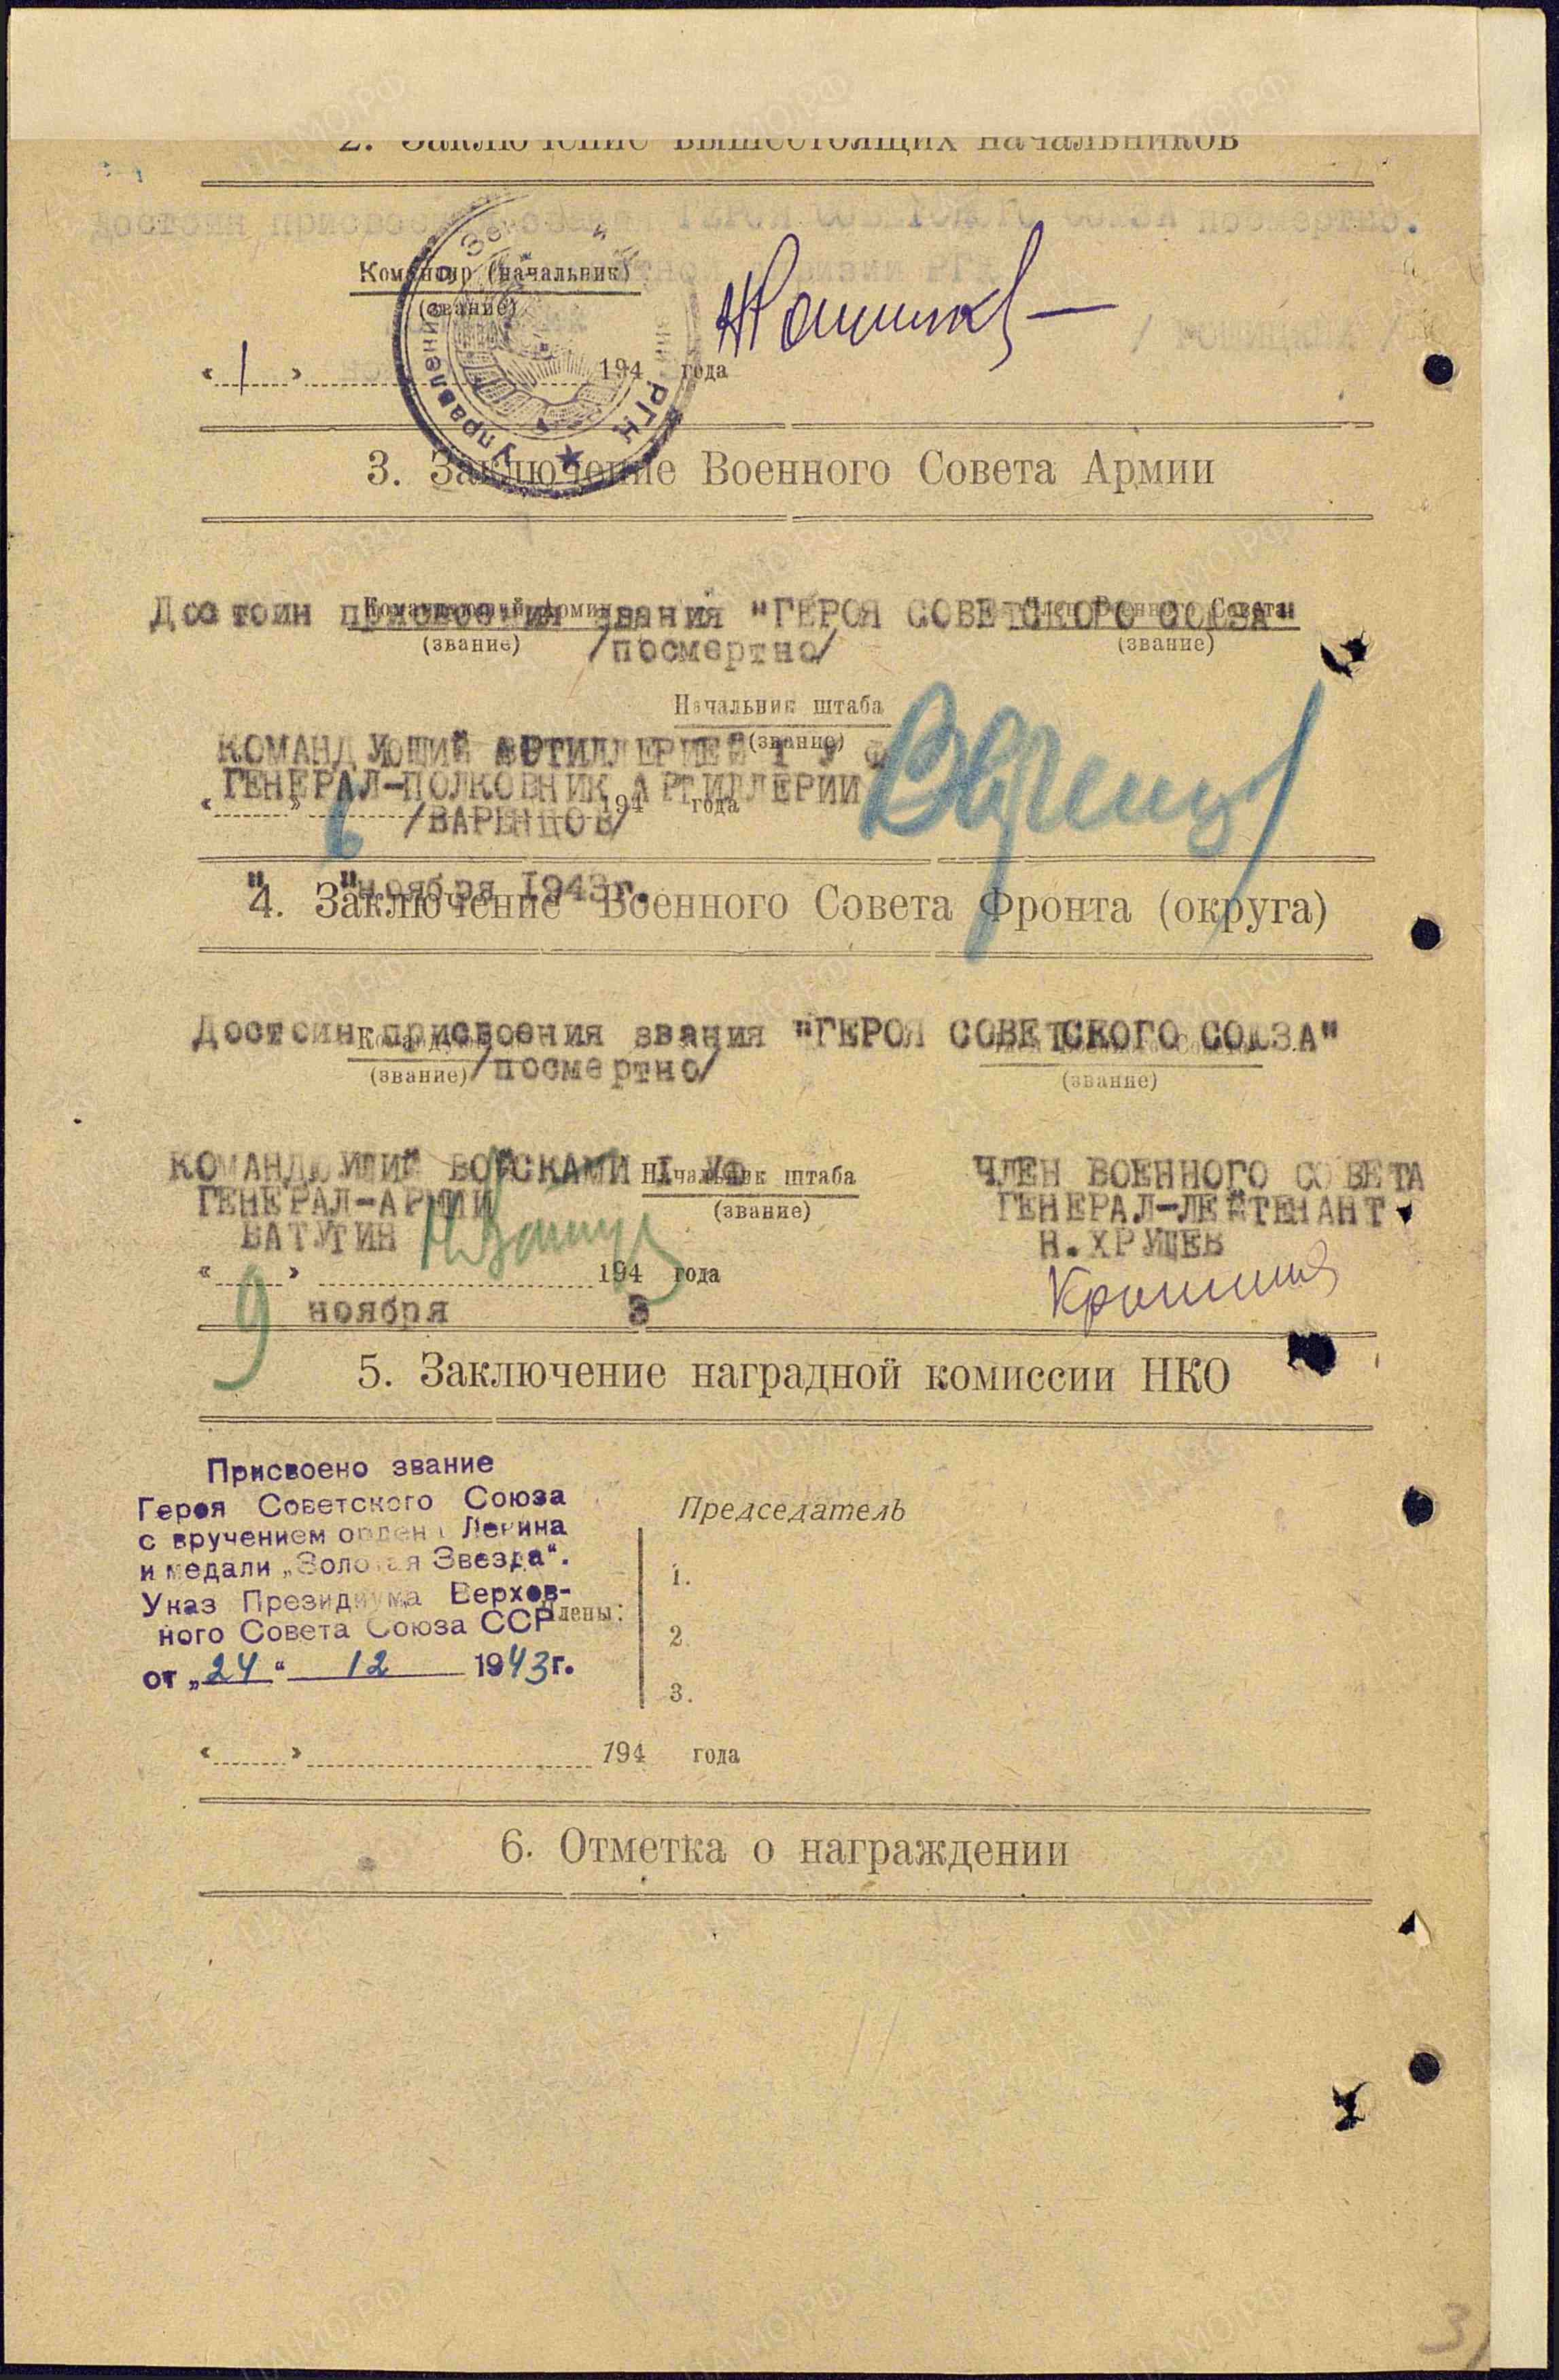 2. Заключение вышестоящих начальников
достоин присвоения звания ГЕРОЯ СОВЕТСКОГО СОЮЗА посмертно.
Командир (начальник)
(звание)
« 1 » 194 года
Управление РГК
3. Заключение Военного Совета Армии
Достоин присвоения звания "ГЕРОЯ СОВЕТСКОГО СОЮЗА"
Командующий Армии Член Военного Совета
(звание) /посмертно/ (звание)
Начальник штаба
(звание)
КОМАНДУЮЩИЙ АРТИЛЛЕРИЕЙ 1 У Ф
ГЕНЕРАЛ-ПОЛКОВНИК АРТИЛЛЕРИИ
« » 194 года
/ВАРЕНЦОВ/
6
" " ноября 1943г.
4. Заключение Военного Совета Фронта (округа)
Достоин присвоения звания "ГЕРОЯ СОВЕТСКОГО СОЮЗА"
(звание) /посмертно/ (звание)
КОМАНДУЮЩИЙ ВОЙСКАМИ 1 УФ Начальник штаба ЧЛЕН ВОЕННОГО СОВЕТА
ГЕНЕРАЛ-АРМИИ (звание) ГЕНЕРАЛ-ЛЕЙТЕНАНТ
ВАТУТИН Н.ХРУЩЕВ
« » 194 года
9 ноября 3
5. Заключение наградной комиссии НКО
Присвоено звание
Героя Советского Союза
с вручением ордена Ленина
и медали „Золотая Звезда“.
Указ Президиума Верхов-
ного Совета Союза ССР
от „24“ 12 1943г.
Председатель
Члены:
1.
2.
3.
« » 194 года
6. Отметка о награждении